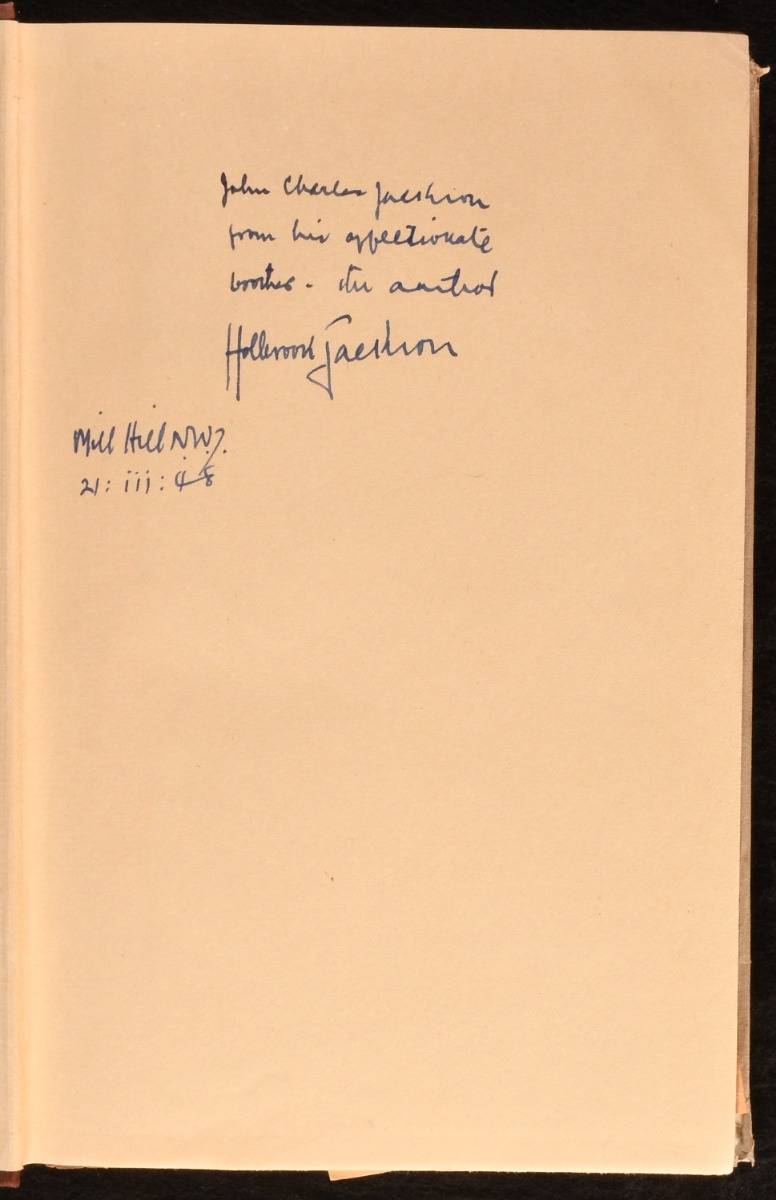 John Charles Jackson
from his affectionate
brother - the author
Holbrook Jackson
Mill Hill N.W.7.
21: iii: 48